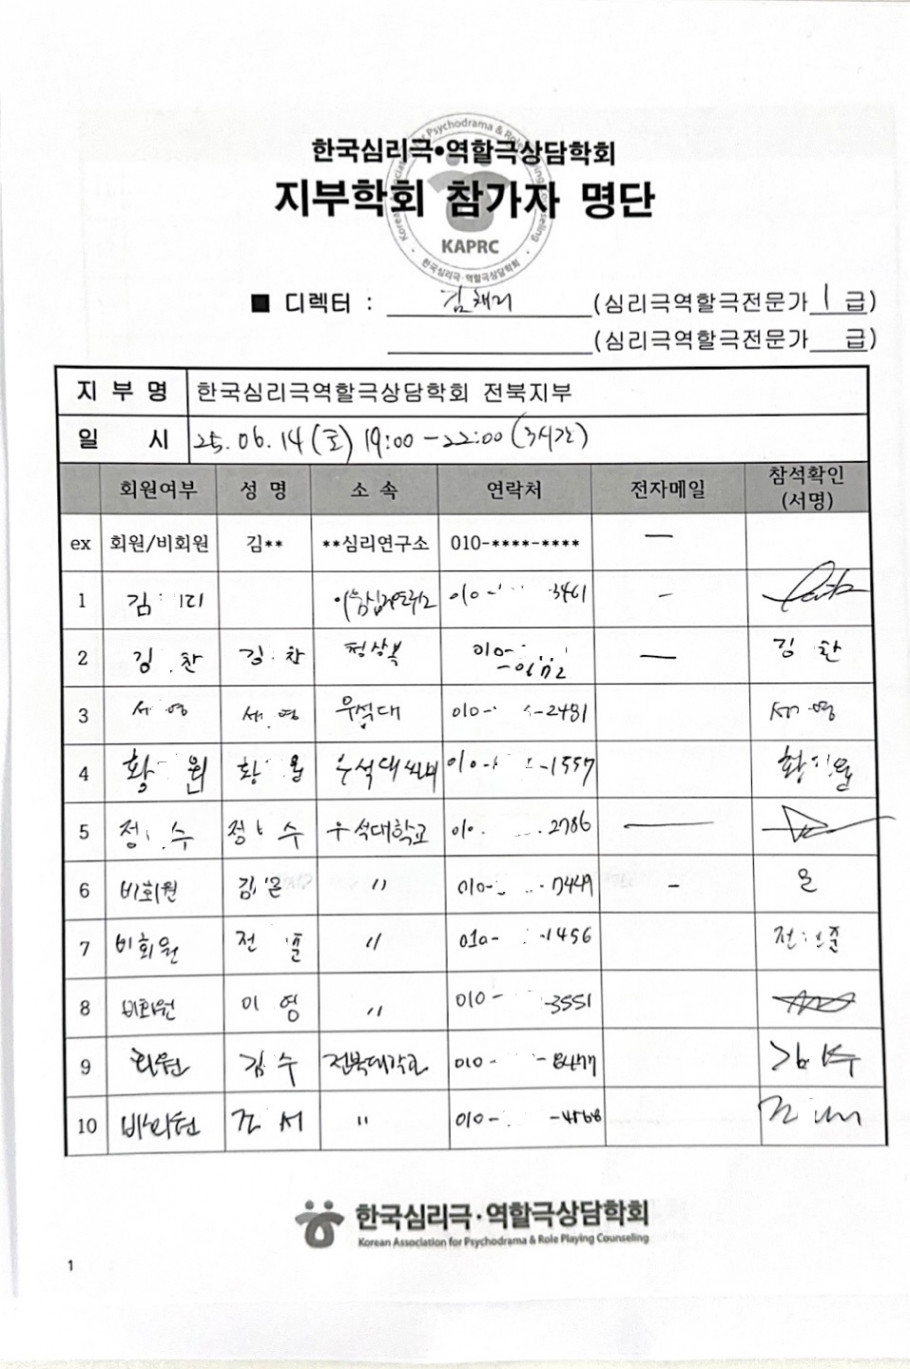 한국심리극•역할극상담학회
지부학회 참가자 명단
Korean Association for Psychodrama & Role Playing Counseling
KAPRC
한국심리극·역할극상담학회
■ 디렉터 : 김채리 (심리극역할극전문가 1 급)
(심리극역할극전문가 급)
지 부 명 한국심리극역할극상담학회 전북지부
일 시 25. 06. 14 (토) 19:00 - 22:00 (3시간)
회원여부 성 명 소 속 연락처 전자메일 참석확인 (서명)
ex 회원/비회원 김** **심리연구소 010-****-**** —
1 김 리 010- 3461 -
2 김 찬 김 찬 010- — 김 찬
3 서 영 서 영 우석대 010- -2481 서 영
4 황 원 황 우석대 010- -1557 황
5 정 수 정 수 우석대학교 010- 2786 —
6 비회원 김 은 〃 010- 7449 - 은
7 비회원 전 〃 010- -1456 전
8 비회원 이 영 〃 010- -3551
9 회원 김 수 전북대학교 010- -8477 김 수
10 서 〃 010- -4568
한국심리극·역할극상담학회
Korean Association for Psychodrama & Role Playing Counseling
1